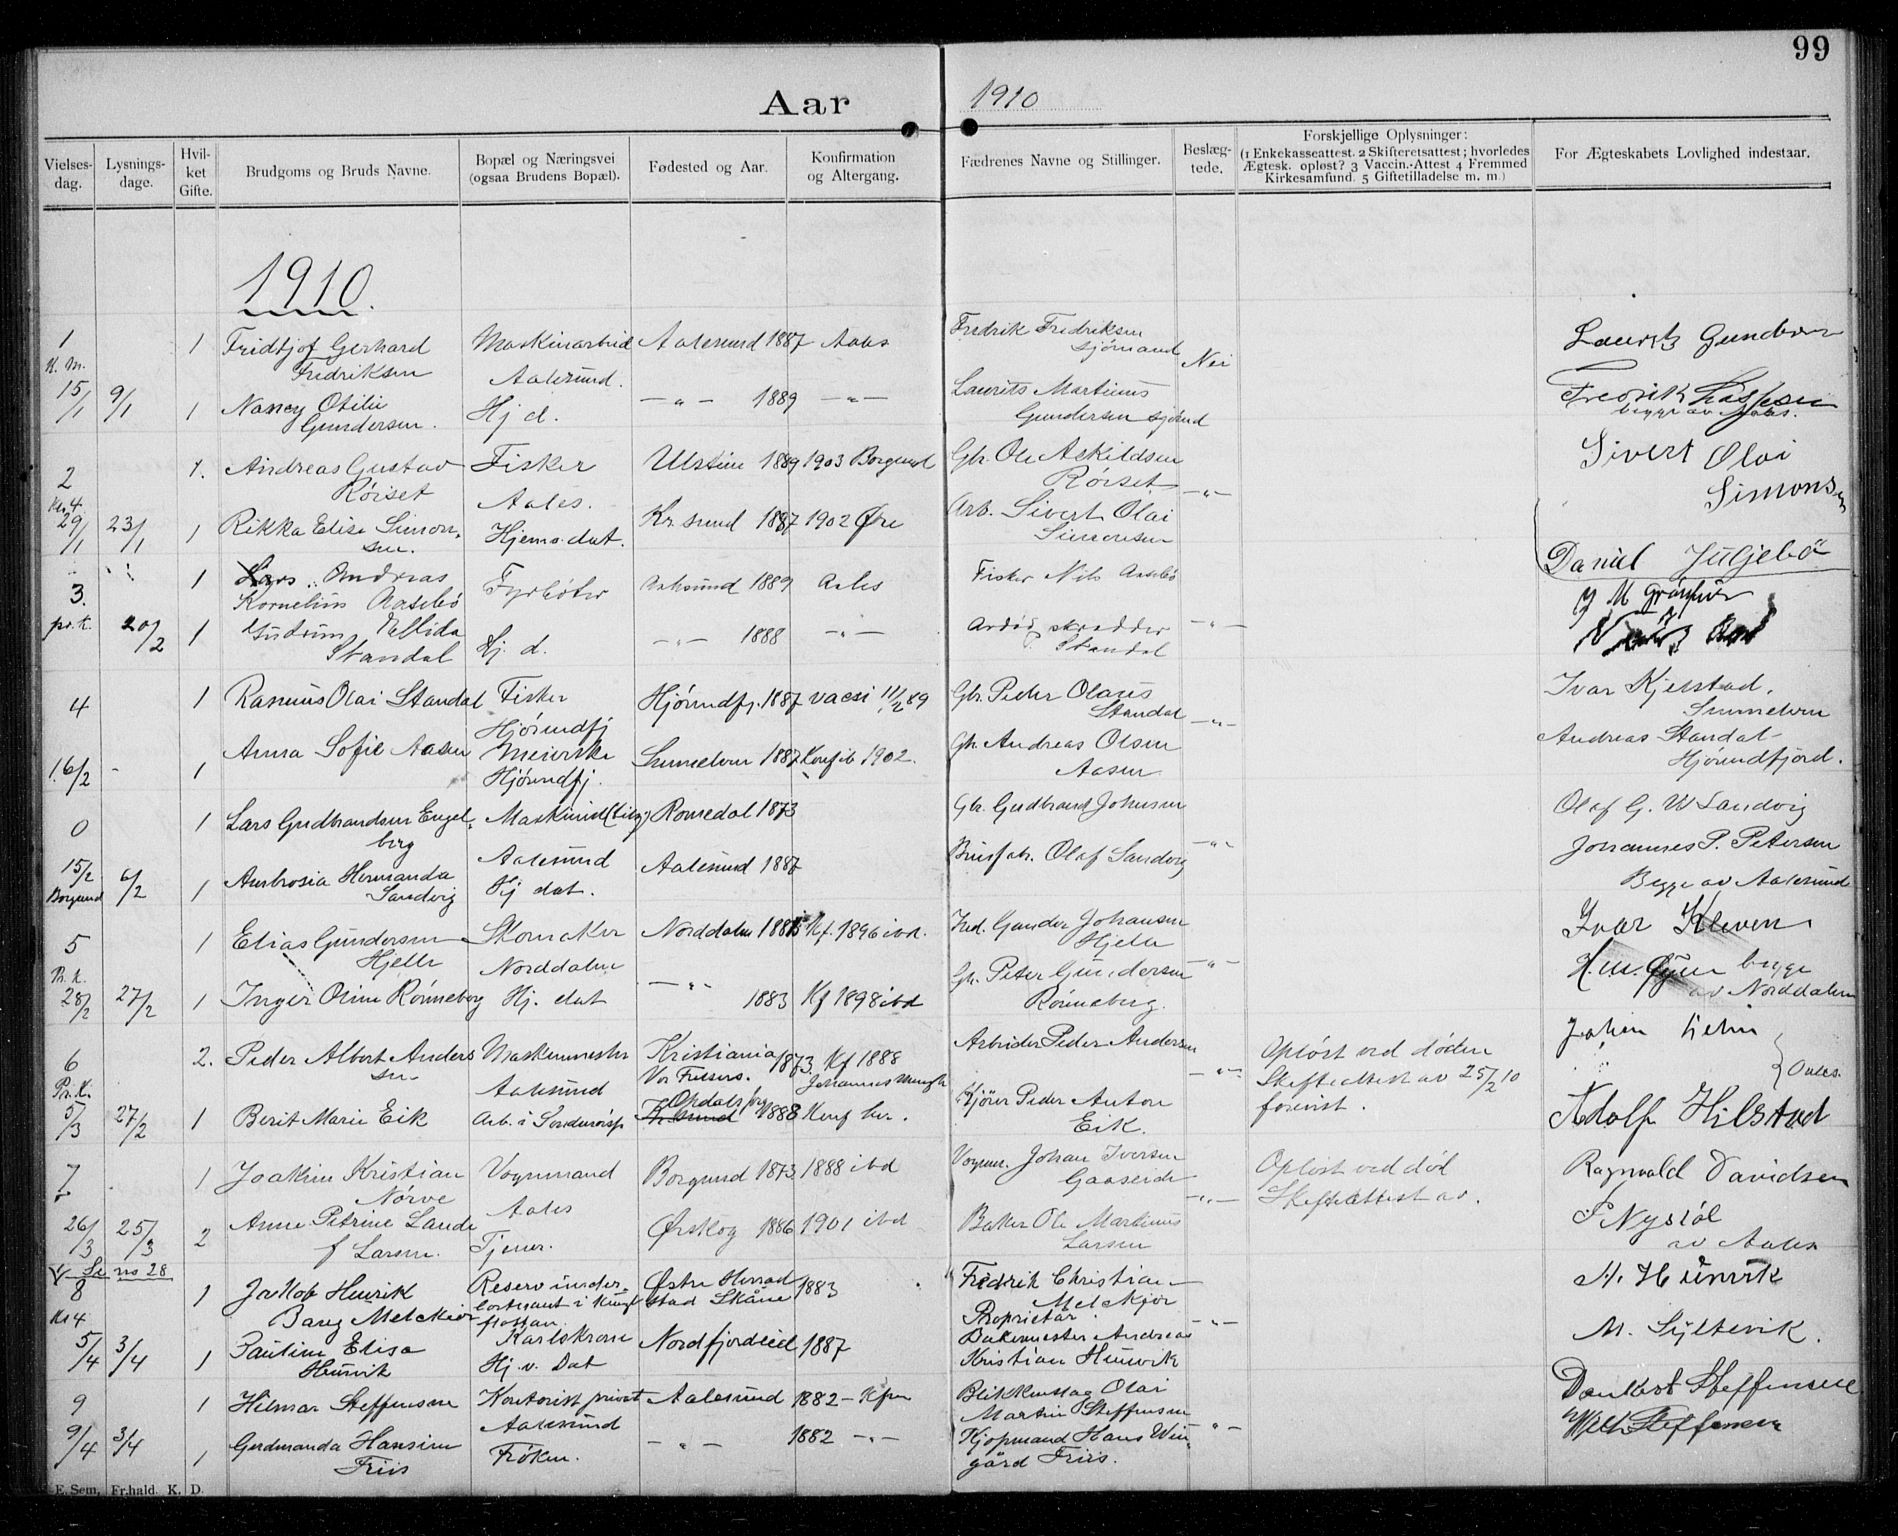 99
Aar 1910
Vielses-dag. Lysnings-dage. Hvil-ket Gifte. Brudgoms og Bruds Navne. Bopæl og Næringsvei (ogsaa Brudens Bopæl). Fødested og Aar. Konfirmation og Altergang. Fædrenes Navne og Stillinger. Beslæg-tede. Forskjellige Oplysninger: (1 Enkekasseattest. 2 Skifteretsattest; hvorledes Ægtesk. opløst? 3 Vaccin.-Attest 4 Fremmed Kirkesamfund. 5 Giftetilladelse m. m.) For Ægteskabets Lovlighed indestaar.
1910.
1 1 Fridtjof Gerhard Maskinarbeid Aalesund 1887 Aales Fredrik Fredriksen
Fredriksen Aalesund. sjømand Nei
15/1 9/1 1 Nancy Otilie Hj d. —„— 1889 —„— Laurits Martinus Fredrik
Gundersen. Gundersen sjømd begge av Aales.
2 1. Andreas Gustav Fisker Ulstein 1889 1903 Borgund Gbr. Ole Askildsen Sivert Olai
Rørset Aales. Rørset —„— Simonsen
29/1 23/1 1 Rikka Elise Simon- Hjems. dat. Kr.sund 1887 1902 Øre Arb. Sivert Olai
sen. Simonsen
3. 1 Lars Andreas Fyrbøter Aalesund 1889 Aales Fisker Nils Aasebø Daniel
Kornelius Aasebø
pr.k. 20/2 1 Gudrun Ellida Hj. d. —„— 1888 —„— skrædder —„—
Standal Standal
4 1 Rasmus Olai Standal Fisker Hjørundfj. 1887 vacsi 11/2 89 Gbr. Peder Olaus Ivar Kjelstad,
Hjørundfj Standal —„— Sunnelven
16/2 - 1 Anna Sofie Aasen Meierske Sunnelven 1887 Konf ib 1902. Gbr. Andreas Olsen Andreas Standal
Hjørundfj. Aasen Hjørundfjord.
0 1 Lars Gudbrandsen Engel- Maskinist Romedal 1873 Gbr. Gudbrand Johnsen Olaf G. W Sandvig
berg Aalesund —„— Johannes P. Petersen
15/2 Borgund 6/2 1 Ambrosia Hermanda Hj dat. Aalesund 1887 Olaf Sandvig
Sandvig Begge av Aalesund
5 1 Elias Gundersen Skomaker Norddalen 188 Kf. 1896 ibd. Gunder Johansen Ivar Kleven
Hjelle Norddalen Hjelle —„— begge
28/2 27/2 1 Inger Oline Rønneberg Hj. dat —„— 1883 Kf 1898 ibd Gbr. Peter Gundersen av Norddalen
Rønneberg.
6 2. Peder Albert Anders Maskinmester Kristiania 1873. Kf 1888 Arbeider Peder Andersen Opløst ved døden Johan
sen Aalesund Vor Frelsers. Johannes menigh —„— Skifteattest av 25/2 10 Aales.
Pr.K. 5/3 27/2 1 Berit Marie Eik Arb. i Opdal 1888 Konf her. Kjører Peder Anton forevist. Adolf Hilstad
Eik.
7 1 Joakim Kristian Vognmand Borgund 1873 1888 ibd Vognm. Johan Iversen Opløst ved død Ragnvald Davidsen
Norve Aales Gaaseide —„— Skifteattest av. P Nystøl
26/3 25/3 2 Anne Petrine Lande Tjener. Ørskog 1886 1901 ibd Baker Ole Martinus av Aales
f Larsen. Larsen
Se no 28
8 1 Jakob Henrik Reserv under- Østre Herrad 1883 Fredrik Christian
Bang Melckior løitenant i Kungl stad Skåne Melckior
flottan Proprietär —„—
5/4 3/4 1 Pauline Elisa Karlskrone Nordfjordeid 1887 Bakermester Andreas M. Syltevik.
Hunvik Hj. v. Dat Kristian Hunvik
9 1 Hilmar Steffensen Kontorist privat Aalesund 1882 - Kfen Blikkenslag Olai Dankert Steffensen
Aalesund Martin Steffensen —„— Steffensen
9/4 3/4 1 Gerdmanda Hansine Frøken. —„— 1882 —„— Kjøpmand Hans Win-
Friis gård Friis.
E. Sem, Fr.hald. K. D.